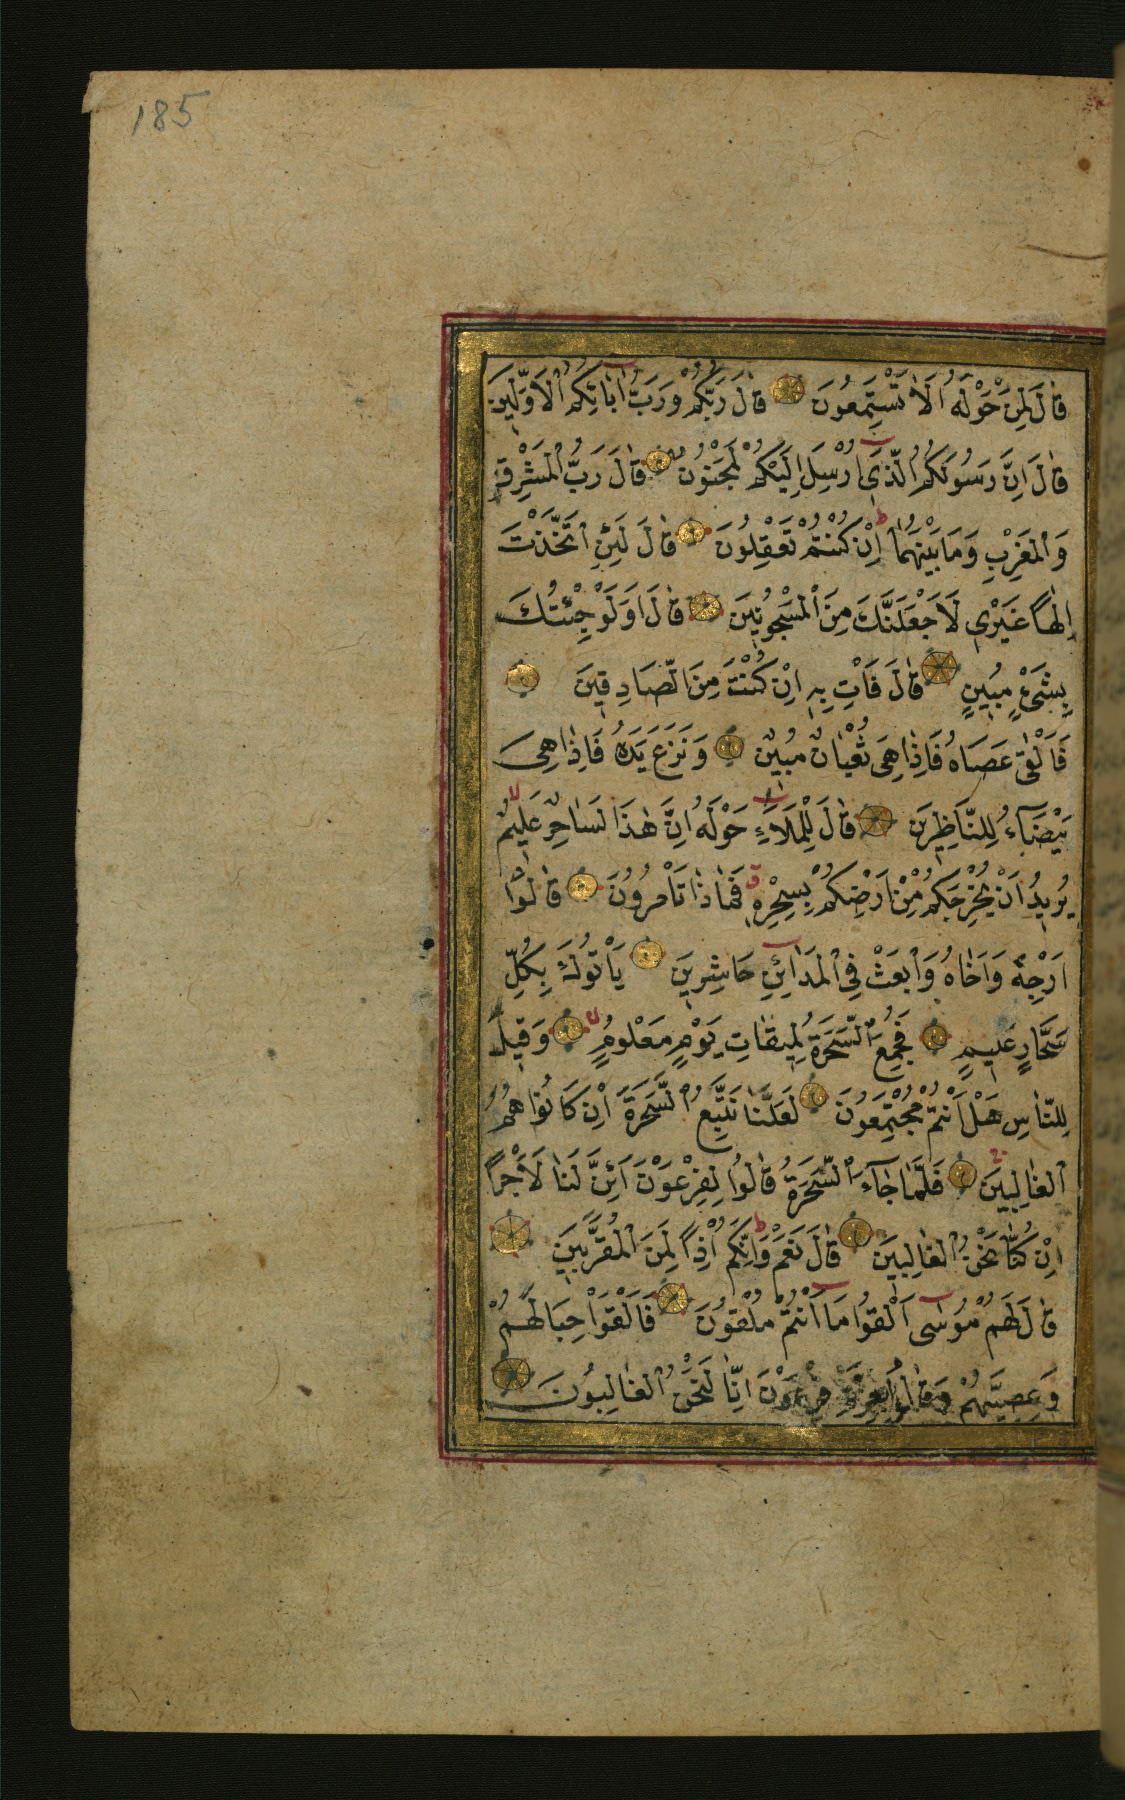 185
قَالَ لِمَنْ حَوْلَهُ اَلَا تَسْتَمِعُونَ قَالَ رَبُّكُمْ وَرَبُّ اٰبَائِكُمُ الْاَوَّلِينَ
قَالَ اِنَّ رَسُولَكُمُ الَّذِي اُرْسِلَ اِلَيْكُمْ لَمَجْنُونٌ قَالَ رَبُّ الْمَشْرِقِ
وَالْمَغْرِبِ وَمَا بَيْنَهُمَا اِنْ كُنْتُمْ تَعْقِلُونَ قَالَ لَئِنِ اتَّخَذْتَ
اِلٰهًا غَيْرِي لَاَجْعَلَنَّكَ مِنَ الْمَسْجُونِينَ قَالَ اَوَلَوْ جِئْتُكَ
بِشَيْءٍ مُبِينٍ قَالَ فَاْتِ بِهِ اِنْ كُنْتَ مِنَ الصَّادِقِينَ
فَاَلْقٰى عَصَاهُ فَاِذَا هِيَ ثُعْبَانٌ مُبِينٌ وَنَزَعَ يَدَهُ فَاِذَا هِيَ
بَيْضَاءُ لِلنَّاظِرِينَ قَالَ لِلْمَلَاِ حَوْلَهُ اِنَّ هٰذَا لَسَاحِرٌ عَلِيمٌ
يُرِيدُ اَنْ يُخْرِجَكُمْ مِنْ اَرْضِكُمْ بِسِحْرِهِ فَمَاذَا تَاْمُرُونَ قَالُوا
اَرْجِهْ وَاَخَاهُ وَابْعَثْ فِي الْمَدَائِنِ حَاشِرِينَ يَاْتُوكَ بِكُلِّ
سَحَّارٍ عَلِيمٍ فَجُمِعَ السَّحَرَةُ لِمِيقَاتِ يَوْمٍ مَعْلُومٍ وَقِيلَ
لِلنَّاسِ هَلْ اَنْتُمْ مُجْتَمِعُونَ لَعَلَّنَا نَتَّبِعُ السَّحَرَةَ اِنْ كَانُوا هُمُ
الْغَالِبِينَ فَلَمَّا جَاءَ السَّحَرَةُ قَالُوا لِفِرْعَوْنَ اَئِنَّ لَنَا لَاَجْرًا
اِنْ كُنَّا نَحْنُ الْغَالِبِينَ قَالَ نَعَمْ وَاِنَّكُمْ اِذًا لَمِنَ الْمُقَرَّبِينَ
قَالَ لَهُمْ مُوسٰى اَلْقُوا مَا اَنْتُمْ مُلْقُونَ فَاَلْقَوْا حِبَالَهُمْ
وَعِصِيَّهُمْ وَقَالُوا بِعِزَّةِ فِرْعَوْنَ اِنَّا لَنَحْنُ الْغَالِبُونَ